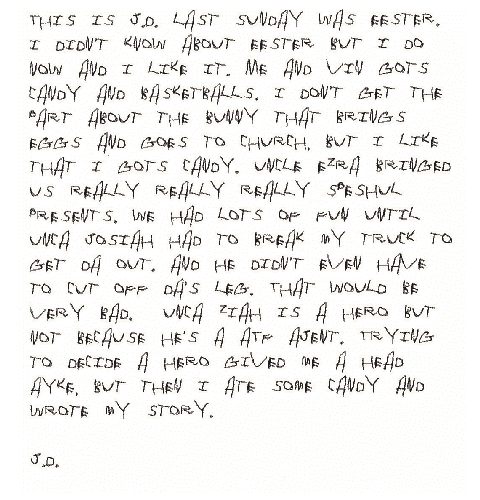 THIS IS J.D. LAST SUNDAY WAS EESTER.
I DIDN'T KNOW ABOUT EESTER BUT I DO
NOW AND I LIKE IT. ME AND VIN GOTS
CANDY AND BASKETBALLS. I DON'T GET THE
PART ABOUT THE BUNNY THAT BRINGS
EGGS AND GOES TO CHURCH, BUT I LIKE
THAT I GOTS CANDY. UNCLE EZRA BRINGED
US REALLY REALLY REALLY SPESHUL
PRESENTS. WE HAD LOTS OF FUN UNTIL
UNCA JOSIAH HAD TO BREAK MY TRUCK TO
GET DA OUT. AND HE DIDN'T EVEN HAVE
TO CUT OFF DA'S LEG. THAT WOULD BE
VERY BAD. UNCA ZIAH IS A HERO BUT
NOT BECAUSE HE'S A ATF AJENT. TRYING
TO DECIDE A HERO GIVED ME A HEAD
AYKE, BUT THEN I ATE SOME CANDY AND
WROTE MY STORY.
J.D.